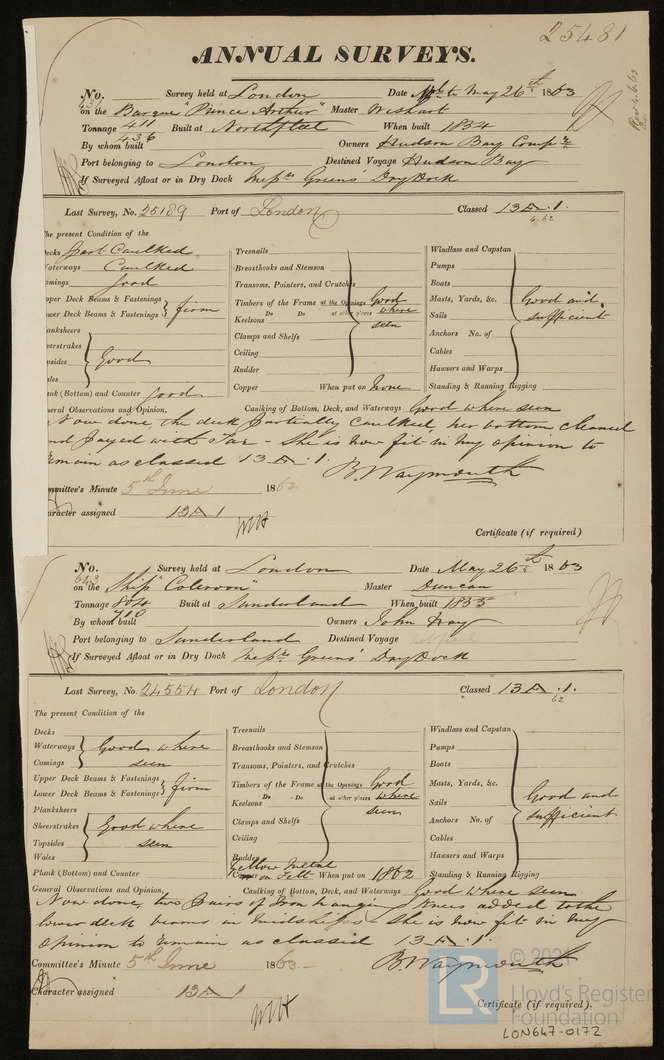 25481
ANNUAL SURVEYS.
No. Survey held at London Date May 26th 1863
on the Barque "Prince Arthur" Master Wishart
Tonnage 436 Built at Northfleet When built 1854
By whom built Owners Hudson Bay Compy.
Port belonging to London Destined Voyage Hudson Bay
If Surveyed Afloat or in Dry Dock Messrs Greens' Dry Dock
Last Survey, No. 25189 Port of London Classed 13 A.1.
4.62
The present Condition of the
Decks Part Caulked
Waterways Caulked
Comings good
Upper Deck Beams & Fastenings
Lower Deck Beams & Fastenings firm
Planksheers
Sheerstrakes
Topsides Good
Wales
Plank (Bottom) and Counter good
Treenails
Breasthooks and Stemson
Transoms, Pointers, and Crutches
Timbers of the Frame at the Openings Good
Do Do at other places where
Keelsons seen
Clamps and Shelfs
Ceiling
Rudder
Copper When put on None
Windlass and Capstan
Pumps
Boats
Masts, Yards, &c. Good and
Sails sufficient
Anchors No. of
Cables
Hawsers and Warps
Standing & Running Rigging
General Observations and Opinion, Caulking of Bottom, Deck, and Waterways Good where seen
Now done, the deck partially caulked, her bottom cleaned
and payed with Tar - She is now fit in my opinion to
remain as classed 13 A.1.
B. Waymouth
Committee's Minute 5th June 1863
Character assigned 13 A 1
Certificate (if required)
No. Survey held at London Date May 26th 1863
on the Ship "Coleroon" Master Duncan
Tonnage 804 Built at Sunderland When built 1855
710
By whom built Owners John Hay
Port belonging to Sunderland Destined Voyage
If Surveyed Afloat or in Dry Dock Messrs Greens' Dry Dock
Last Survey, No. 24554 Port of London Classed 13 A.1.
62
The present Condition of the
Decks
Waterways Good where
Comings seen
Upper Deck Beams & Fastenings
Lower Deck Beams & Fastenings firm
Planksheers
Sheerstrakes Good where
Topsides seen
Wales
Plank (Bottom) and Counter
Treenails
Breasthooks and Stemson
Transoms, Pointers, and Crutches
Timbers of the Frame at the Openings Good
Do Do at other places where
Keelsons seen
Clamps and Shelfs
Ceiling
Rudder
Yellow Metal
Copper on Felt When put on 1862
Windlass and Capstan
Pumps
Boats
Masts, Yards, &c.
Sails Good and
Anchors No. of sufficient
Cables
Hawsers and Warps
Standing & Running Rigging
General Observations and Opinion, Caulking of Bottom, Deck, and Waterways Good where seen
Now done, two pairs of Iron hanging Knees added to the
lower deck beams in midships She is now fit in my
opinion to remain as classed 13 A.1.
B. Waymouth
Committee's Minute 5th June 1863
Character assigned 13 A 1
Certificate (if required).
© 2021
LR Lloyd's Register
Foundation
LON647-0172